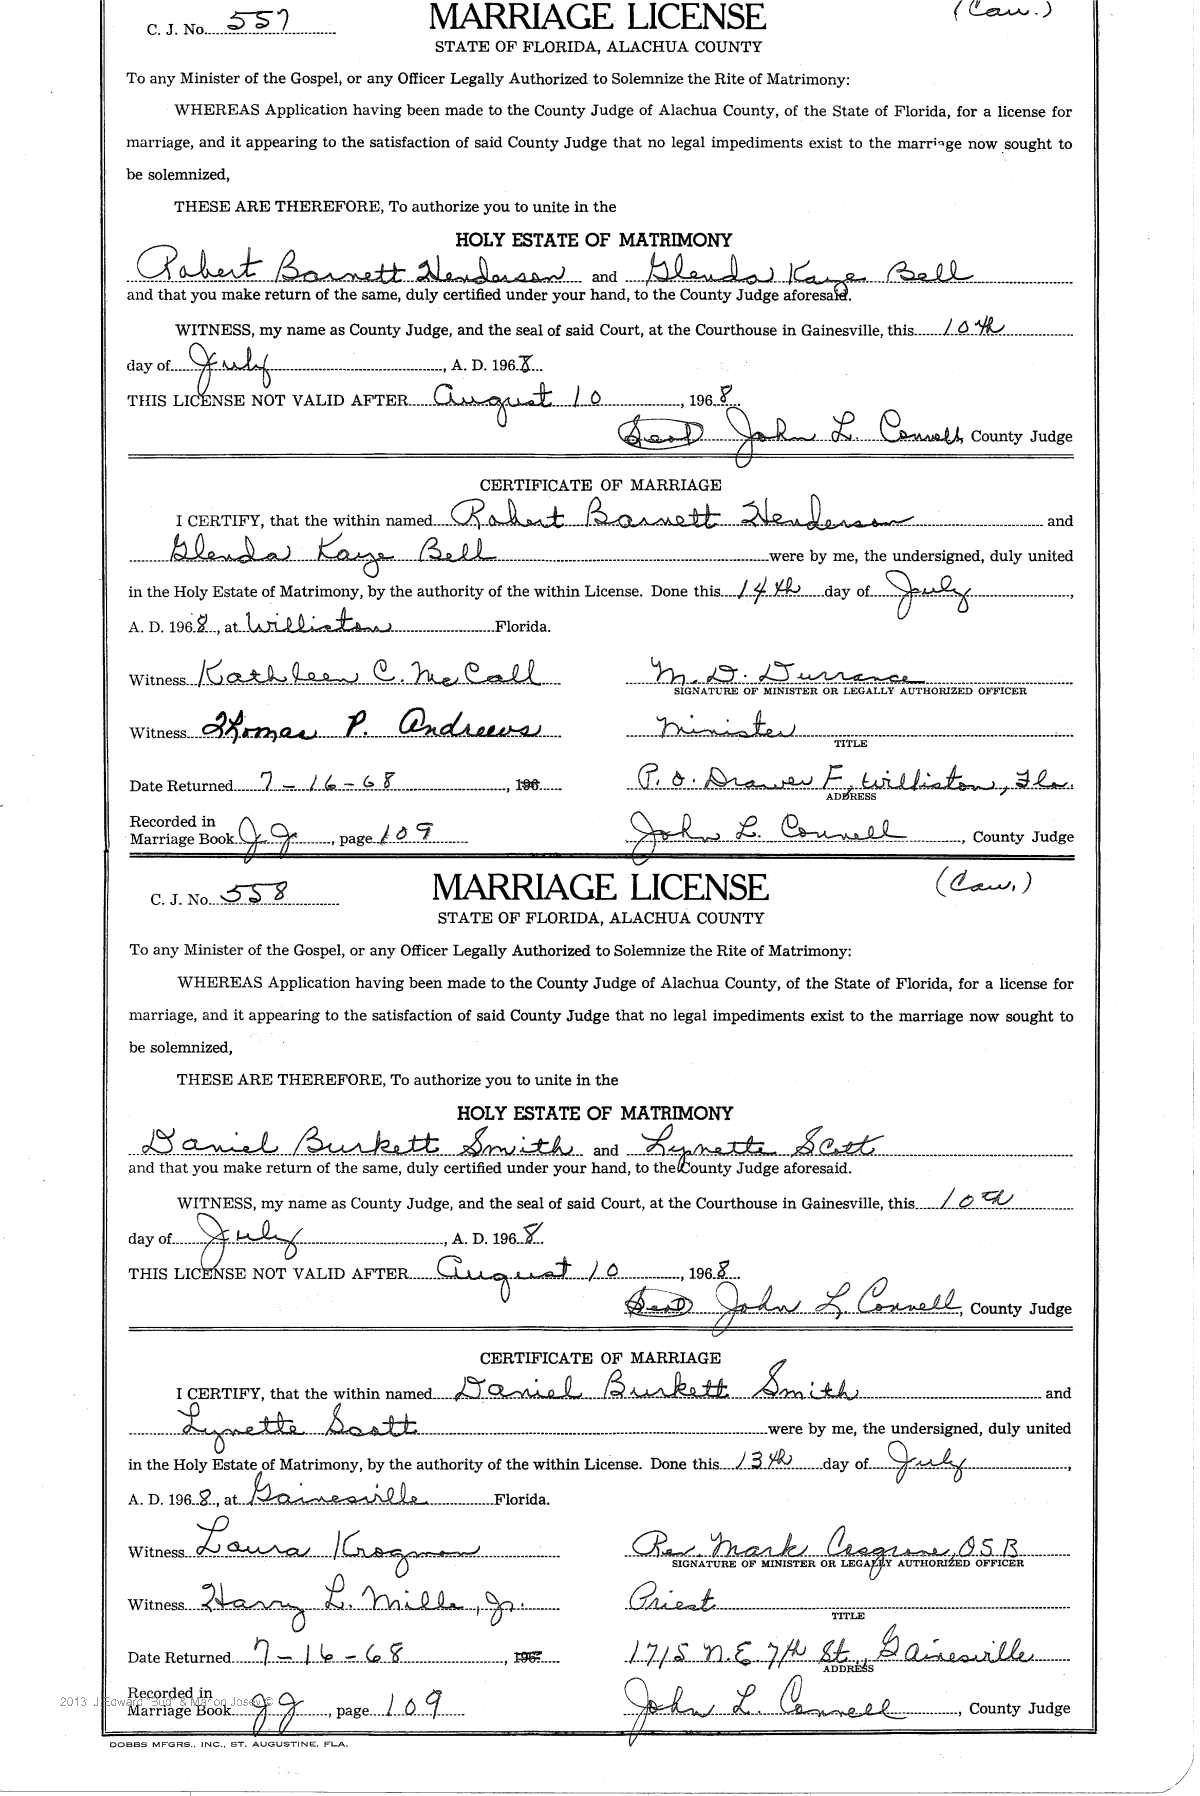 C. J. No. 557 MARRIAGE LICENSE (Cau.)
STATE OF FLORIDA, ALACHUA COUNTY
To any Minister of the Gospel, or any Officer Legally Authorized to Solemnize the Rite of Matrimony:
WHEREAS Application having been made to the County Judge of Alachua County, of the State of Florida, for a license for
marriage, and it appearing to the satisfaction of said County Judge that no legal impediments exist to the marriage now sought to
be solemnized,
THESE ARE THEREFORE, To authorize you to unite in the
HOLY ESTATE OF MATRIMONY
Robert Barnett Henderson and Glenda Kaye Bell
and that you make return of the same, duly certified under your hand, to the County Judge aforesaid.
WITNESS, my name as County Judge, and the seal of said Court, at the Courthouse in Gainesville, this 10th
day of July, A. D. 1968
THIS LICENSE NOT VALID AFTER August 10, 1968
(Seal) John L. Connell, County Judge
CERTIFICATE OF MARRIAGE
I CERTIFY, that the within named Robert Barnett Henderson and
Glenda Kaye Bell were by me, the undersigned, duly united
in the Holy Estate of Matrimony, by the authority of the within License. Done this 14th day of July,
A. D. 1968, at Williston Florida.
Witness Kathleen C. McCall M. D. Durrance
SIGNATURE OF MINISTER OR LEGALLY AUTHORIZED OFFICER
Witness Thomas P. Andrews Minister
TITLE
Date Returned 7-16-68, 196 P. O. Drawer F, Williston, Fla.
ADDRESS
Recorded in
Marriage Book JJ, page 109 John L. Connell, County Judge
C. J. No. 558 MARRIAGE LICENSE (Cau.)
STATE OF FLORIDA, ALACHUA COUNTY
To any Minister of the Gospel, or any Officer Legally Authorized to Solemnize the Rite of Matrimony:
WHEREAS Application having been made to the County Judge of Alachua County, of the State of Florida, for a license for
marriage, and it appearing to the satisfaction of said County Judge that no legal impediments exist to the marriage now sought to
be solemnized,
THESE ARE THEREFORE, To authorize you to unite in the
HOLY ESTATE OF MATRIMONY
Daniel Burkett Smith and Lynette Scott
and that you make return of the same, duly certified under your hand, to the County Judge aforesaid.
WITNESS, my name as County Judge, and the seal of said Court, at the Courthouse in Gainesville, this 10th
day of July, A. D. 1968
THIS LICENSE NOT VALID AFTER August 10, 1968
(Seal) John L. Connell, County Judge
CERTIFICATE OF MARRIAGE
I CERTIFY, that the within named Daniel Burkett Smith and
Lynette Scott were by me, the undersigned, duly united
in the Holy Estate of Matrimony, by the authority of the within License. Done this 13th day of July,
A. D. 1968, at Gainesville Florida.
Witness Laura Krogman Rev. Mark Cosgrove, O.S.B
SIGNATURE OF MINISTER OR LEGALLY AUTHORIZED OFFICER
Witness Harry L. Mills, Jr. Priest
TITLE
Date Returned 7-16-68, 196 1715 N.E. 7th St., Gainesville
ADDRESS
Recorded in
Marriage Book JJ, page 109 John L. Connell, County Judge
2013 J Edward "Bud" & Marion Josey ©
DOBBS MFGRS., INC., ST. AUGUSTINE, FLA.